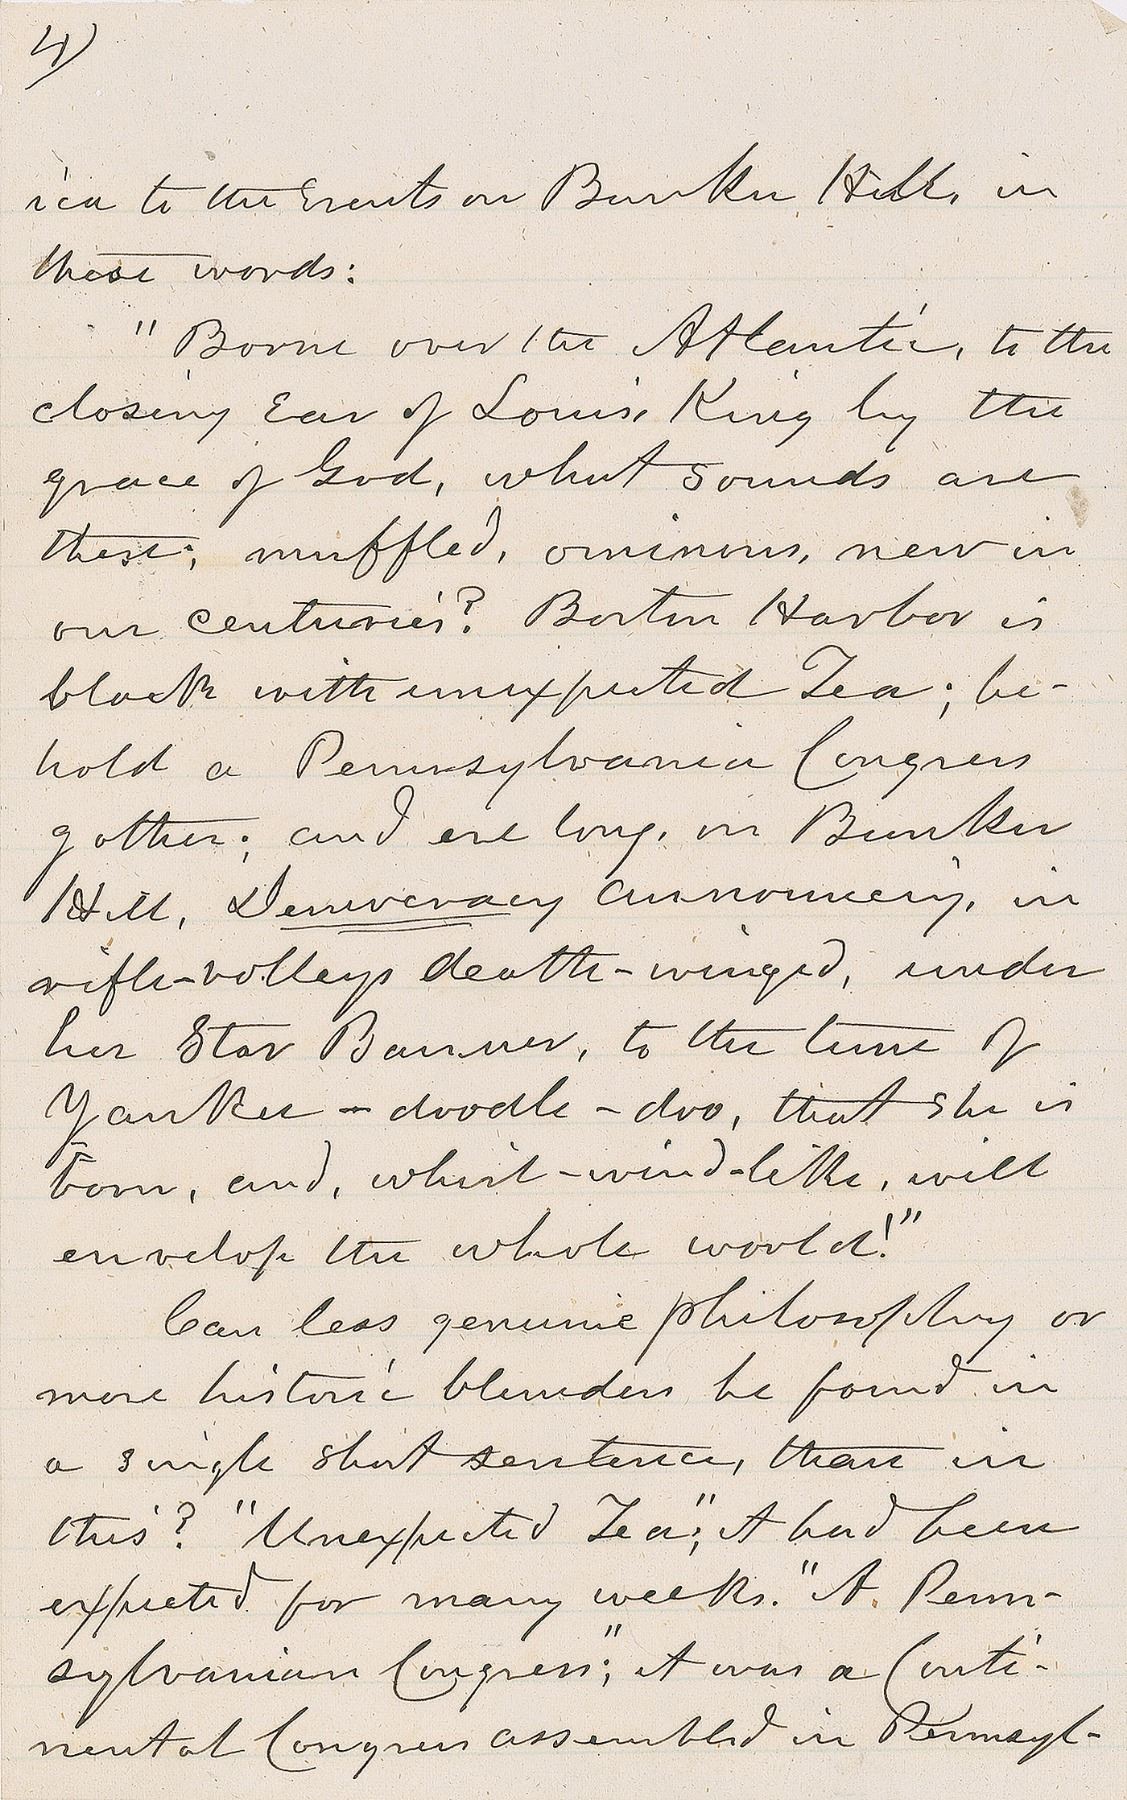 4)
ica to the Events on Bunker Hill, in
these words:
"Borne over the Atlantic, to the
closing Ear of Louis, King by the
grace of God, what sounds are
these; muffled, ominous, new in
our centuries? Boston Harbor is
black with unexpected Tea; be-
hold a Pennsylvania Congress
gather; and ere long, on Bunker
Hill, Democracy announcing, in
rifle-volleys death-winged, under
her Star Banner, to the tune of
Yankee-doodle-doo, that she is
born, and, whirl-wind-like, will
envelop the whole world!"
Can less genuine philosophy or
more historic blunders be found in
a single short sentence, than in
this? "Unexpected Tea"; it had been
expected for many weeks. "A Penn-
sylvanian Congress"; it was a Conti-
nental Congress assembled in Pennsyl-